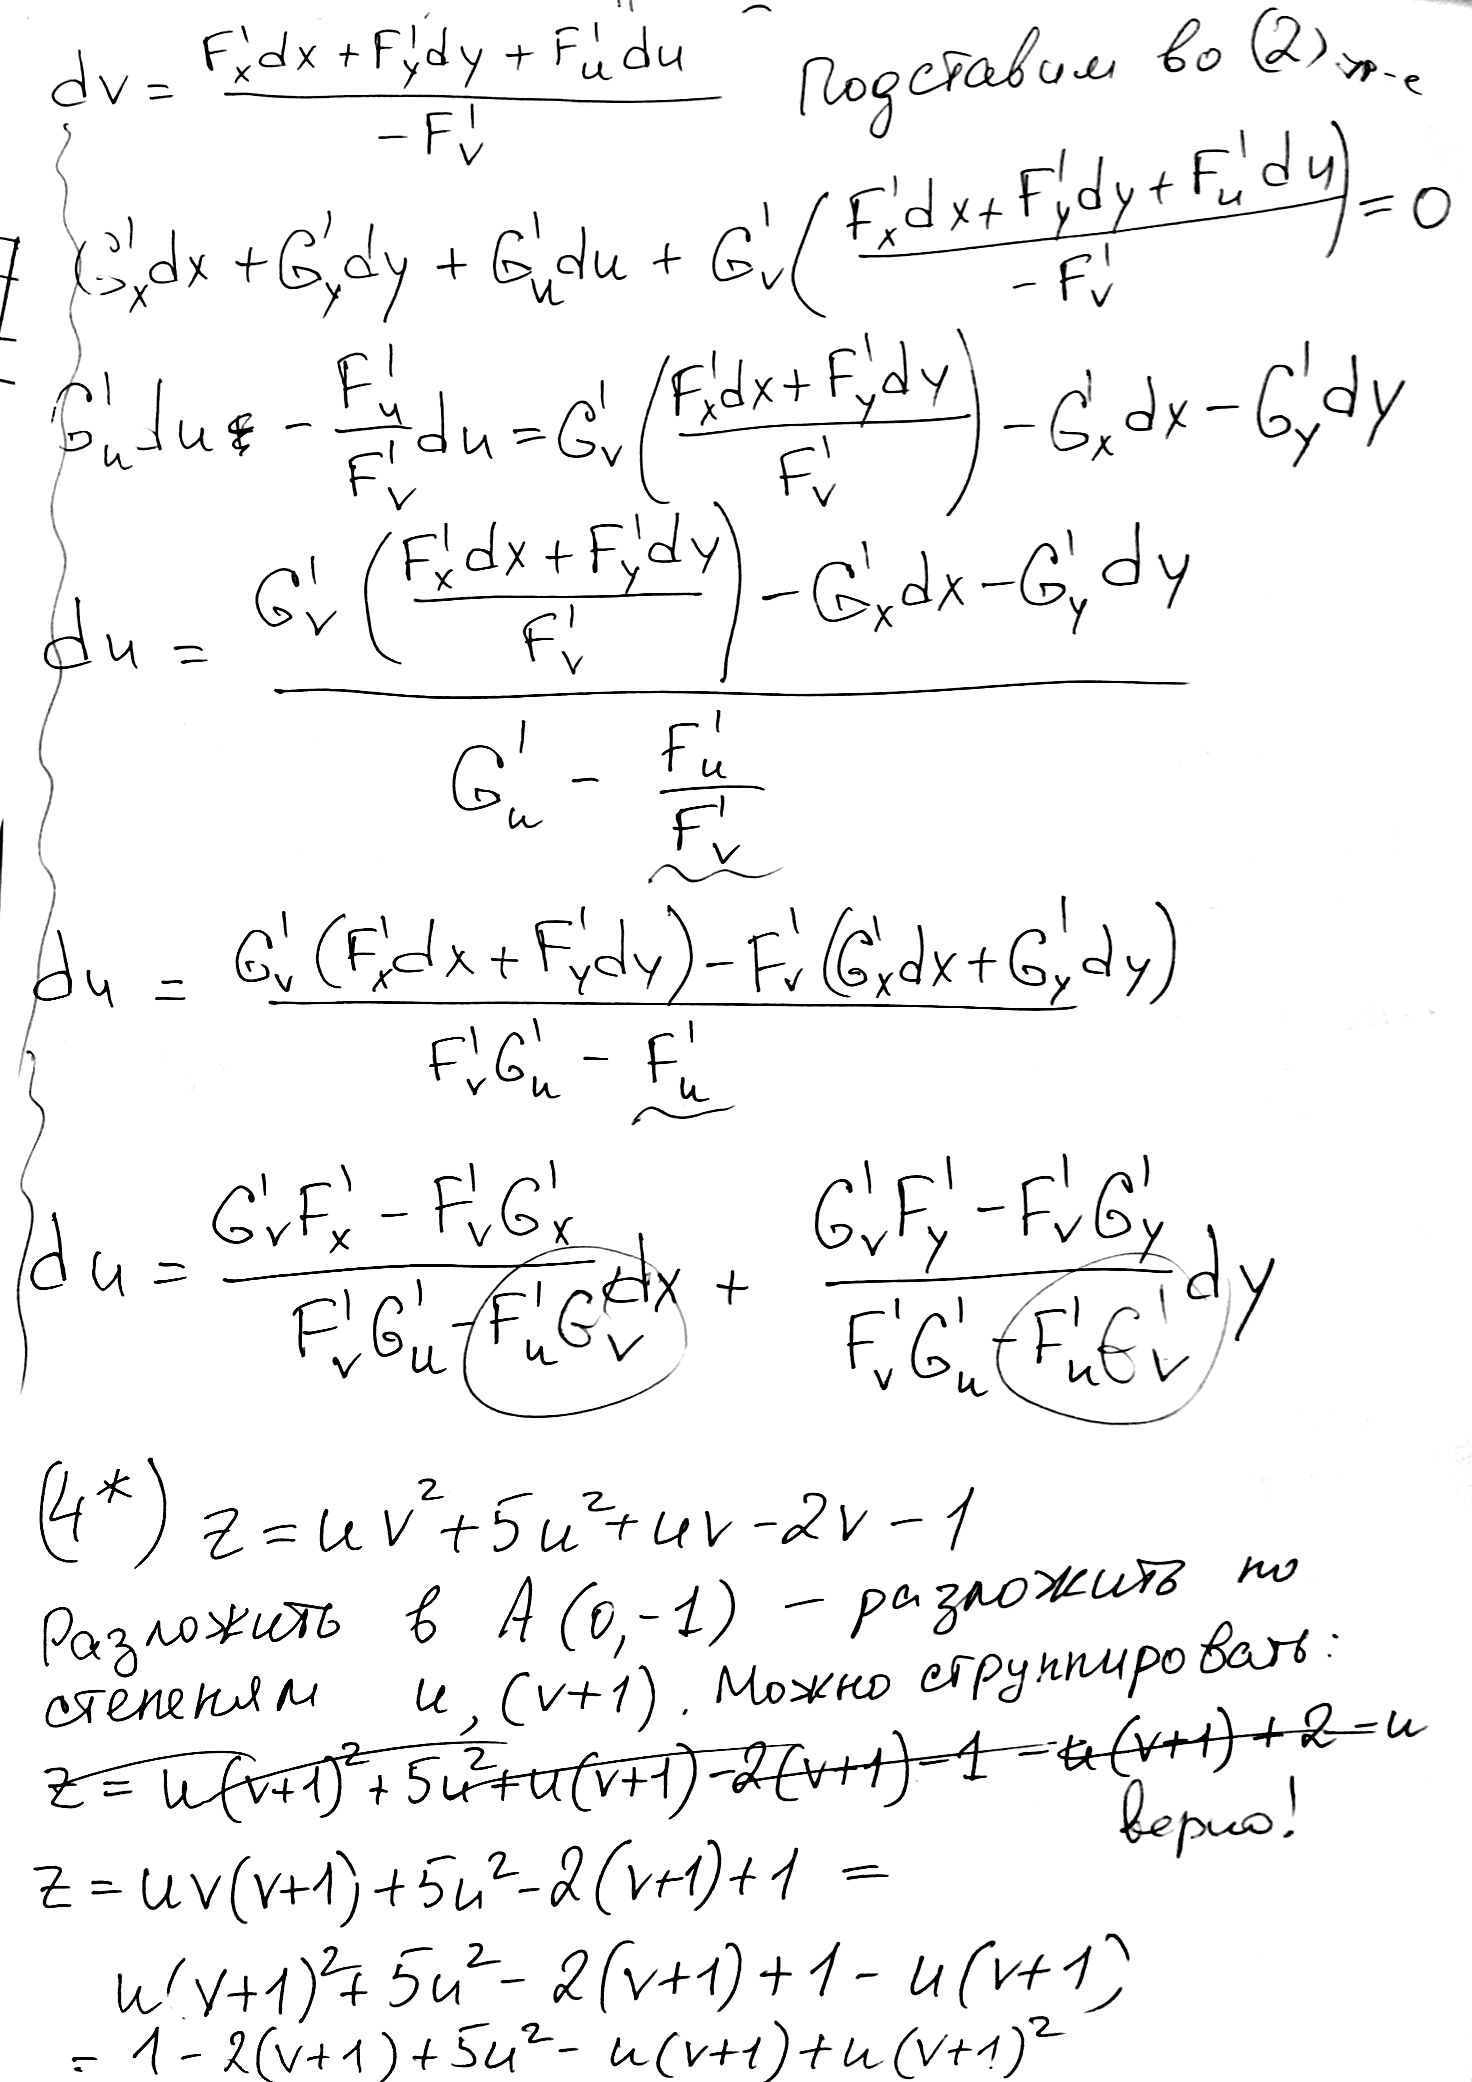 dv = (F'ₓdx + F'ᵧdy + F'ᵤdu) / (−F'ᵥ) Подставим во (2) ур-е
G'ₓdx + G'ᵧdy + G'ᵤdu + G'ᵥ((F'ₓdx + F'ᵧdy + F'ᵤdu) / (−F'ᵥ)) = 0
G'ᵤdu − (F'ᵤ/F'ᵥ)du = G'ᵥ((F'ₓdx + F'ᵧdy) / F'ᵥ) − G'ₓdx − G'ᵧdy
du = (G'ᵥ((F'ₓdx + F'ᵧdy) / F'ᵥ) − G'ₓdx − G'ᵧdy) / (G'ᵤ − F'ᵤ/F'ᵥ)
du = (G'ᵥ(F'ₓdx + F'ᵧdy) − F'ᵥ(G'ₓdx + G'ᵧdy)) / (F'ᵥG'ᵤ − F'ᵤ)
du = (G'ᵥF'ₓ − F'ᵥG'ₓ) / (F'ᵥG'ᵤ − F'ᵤG'ᵥ) dx + (G'ᵥF'ᵧ − F'ᵥG'ᵧ) / (F'ᵥG'ᵤ − F'ᵤG'ᵥ) dy
(4*) z = uv² + 5u² + uv − 2v − 1
Разложить в A(0,−1) − разложить по
степеням u, (v+1). Можно сгруппировать:
z = u(v+1)² + 5u² + u(v+1) − 2(v+1) − 1 − u(v+1) + 2 − u
верно!
z = uv(v+1) + 5u² − 2(v+1) + 1 =
u(v+1)² + 5u² − 2(v+1) + 1 − u(v+1)
= 1 − 2(v+1) + 5u² − u(v+1) + u(v+1)²